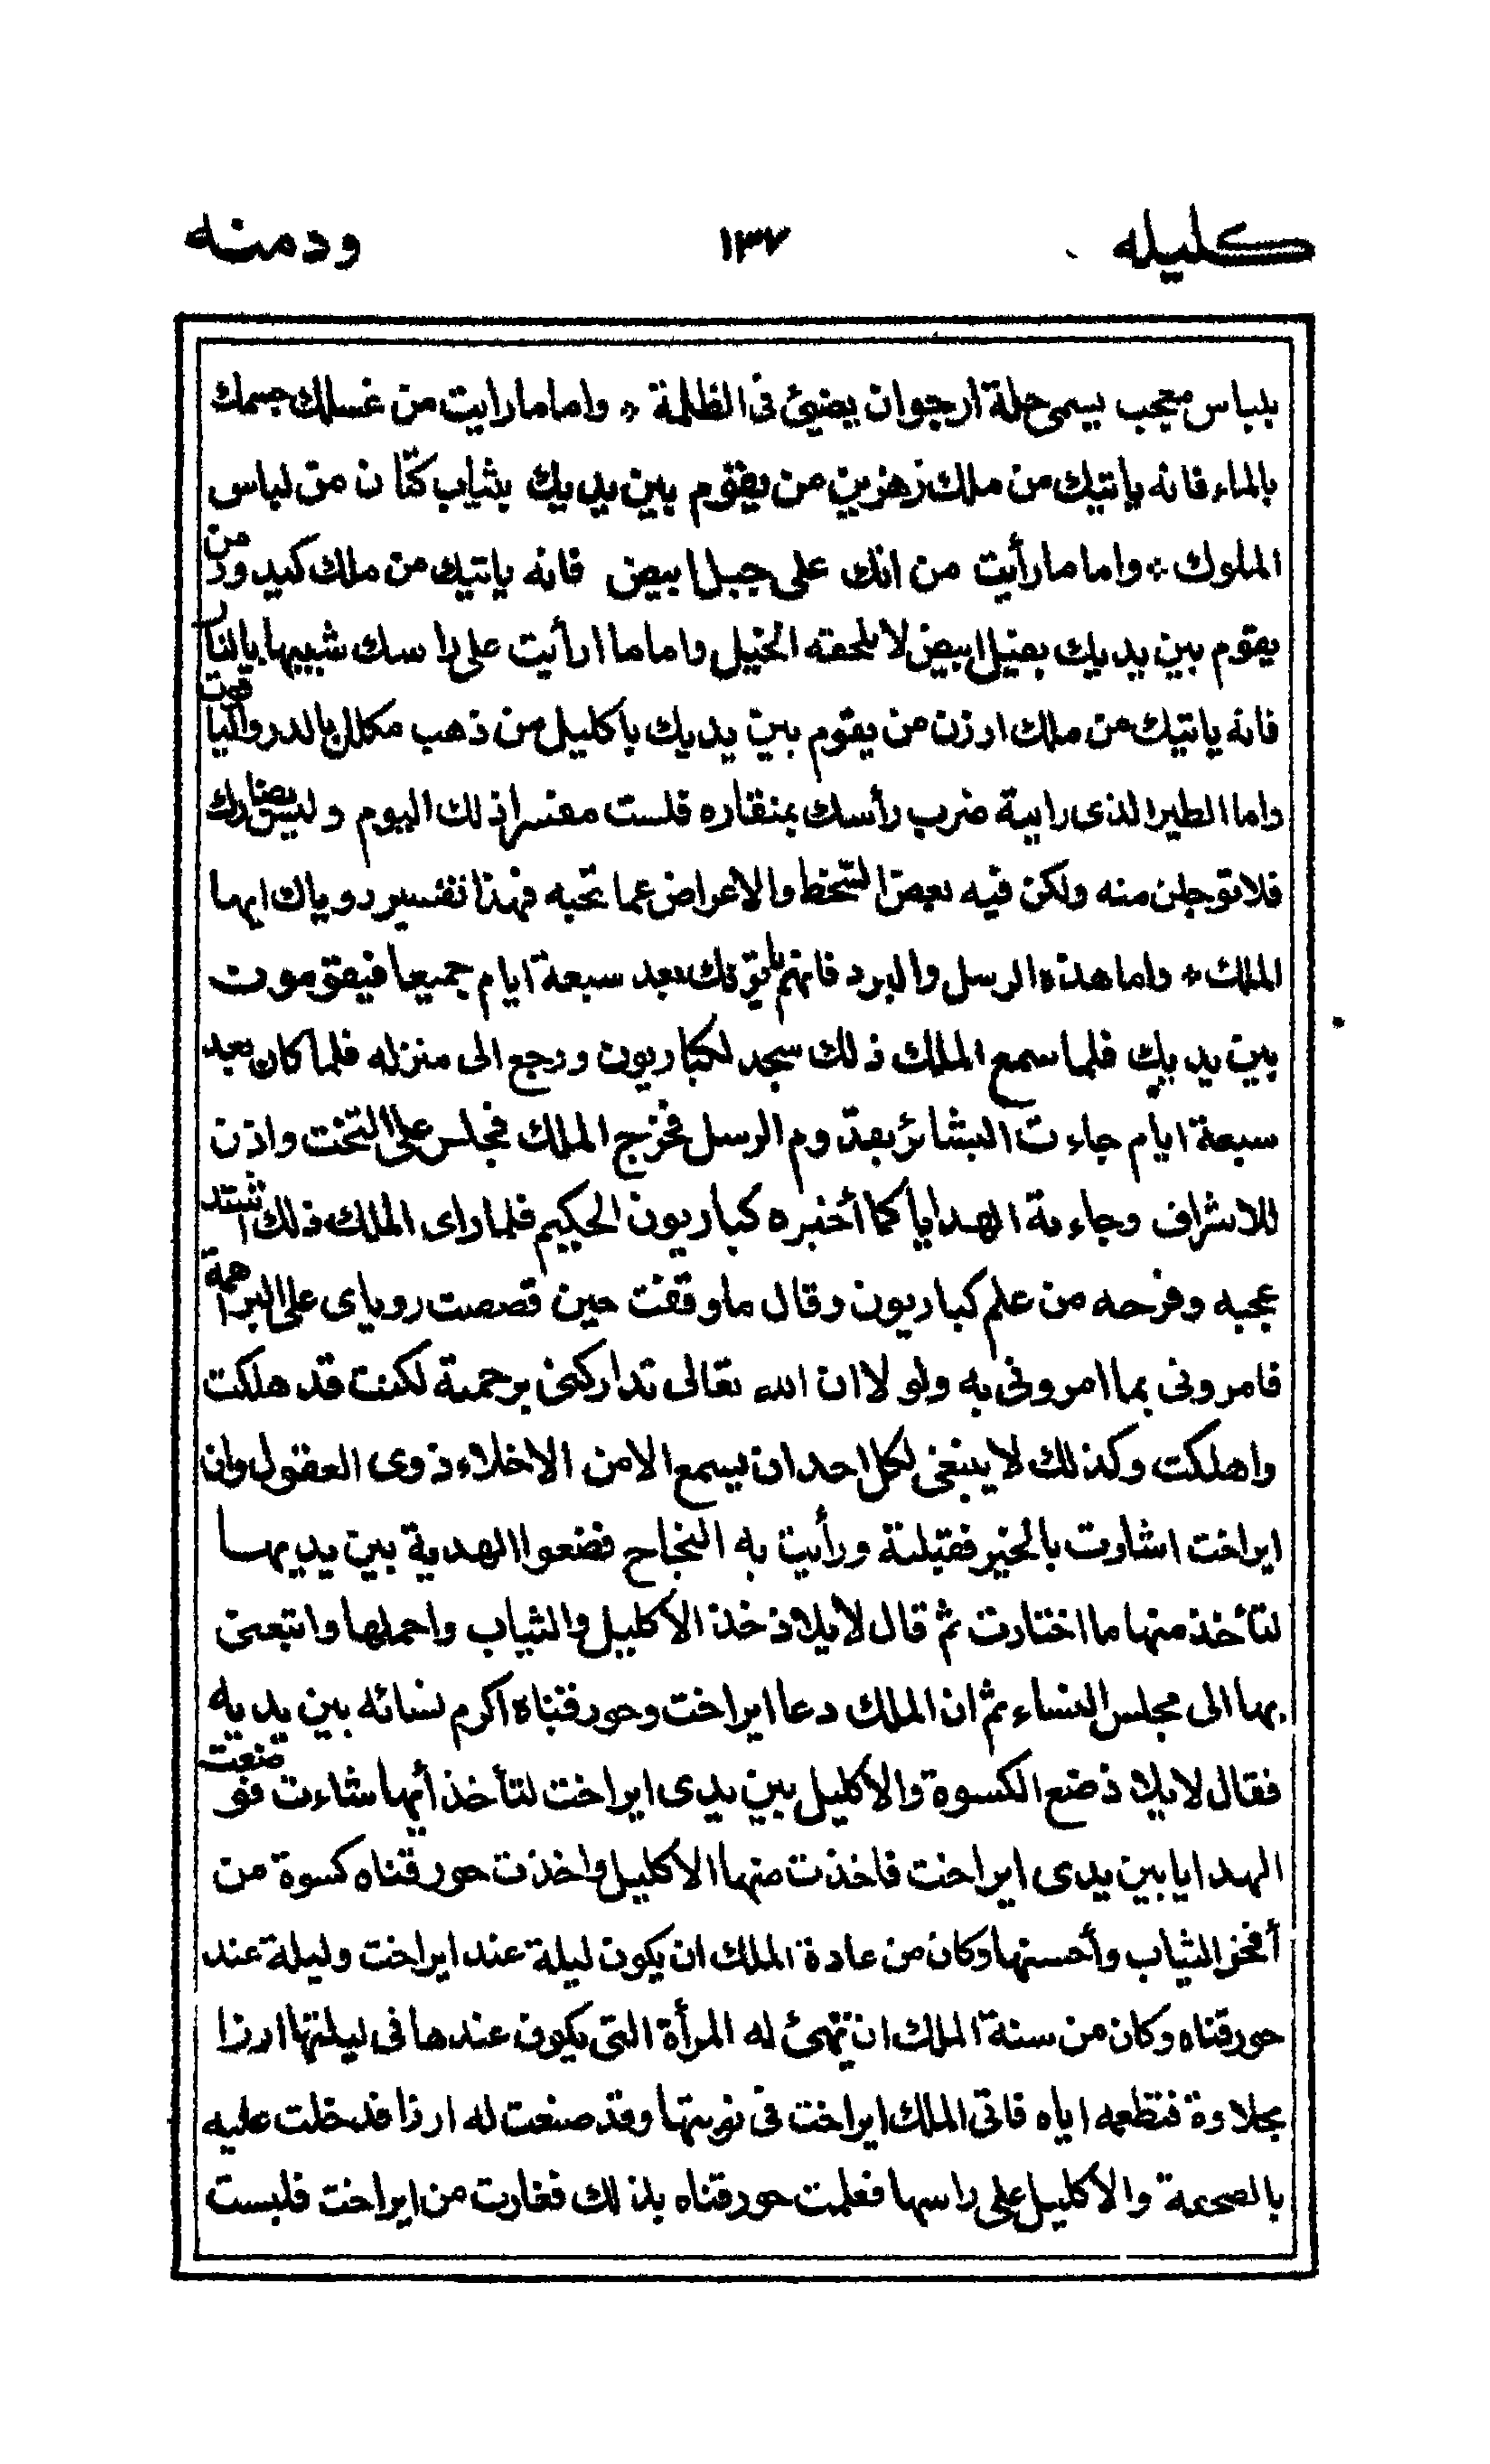 كليله ١٣٧ ودمنه
بلباس معجب يسمى حلة ارجوان يضيئ فى الظلمة * واما مارايت من غسلك جسمك
بالماء فانه ياتيك من ملك زهزين من يقوم بين يديك بثياب كتّان من لباس
الملوك * واما مارأيت من انك على جبل ابيض فانه ياتيك من ملك كيدور من
يقوم بين يديك بفيل ابيض لا تلحقه الخيل واما ما ارأيت على راسك شبيها بالنار
فانه ياتيك من ملك ارزن من يقوم بين يديك باكليل من ذهب مكلل بالدر والياقوت
واما الطير الذى راية ضرب رأسك بمنقاره فلست مفسرا ذلك اليوم وليس بضارك
فلا توجلن منه ولكن فيه بعض السّخط والاعراض عما تحبه فهذا تفسير روياك ايها
الملك * واما هذه الرسل والبرد فانهم ياتونك بعد سبعة ايام جميعا فيقومون
بين يديك فلما سمع الملك ذلك سجد لكباريون ورجع الى منزله فلما كان بعد
سبعة ايام جاءت البشائر بقدوم الرسل فخرج الملك فجلس على التخت واذن
للاشراف وجاءته الهدايا كما أخبره كباريون الحكيم فلما راى الملك ذلك اشتد
عجبه وفرحه من علم كباريون وقال ما وقفت حين قصصت روياى على البراهمة
فامرونى بما امرونى به ولو لا ان الله تعالى تداركنى برحمته لكنت قد هلكت
واهلكت وكذلك لا ينبغى لكل احد ان يسمع الا من الاخلاء ذوى العقول وان
ايراخت اشارت بالخير فقبلتة ورأيت به النجاح فضعوا الهدية بين يديها
لتأخذ منها ما اختارت ثم قال لايلاذ خذ الاكليل والثياب واحملها واتبعنى
بها الى مجلس النساء ثم ان الملك دعا ايراخت وحورقناه اكرم نسائه بين يديه
فقال لايلاذ ضع الكسوة والاكليل بين يدى ايراخت لتأخذ أيها شاءت فوضعت
الهدايا بين يدى ايراخت فاخذت منها الاكليل واخذت حورقناه كسوة من
أفخر الثياب وأحسنها وكان من عادة الملك ان يكون ليلة عند ايراخت وليلة عند
حورقناه وكان من سنة الملك ان تهيئ له المرأة التى يكون عندها فى ليلتها ارزا
بحلاوة فتطعمه اياه فاتى الملك ايراخت فى نوبتها وقد صنعت له ارزا فدخلت عليه
بالصحفة والاكليل على راسها فعلمت حورقناه بذلك فغارت من ايراخت فلبست